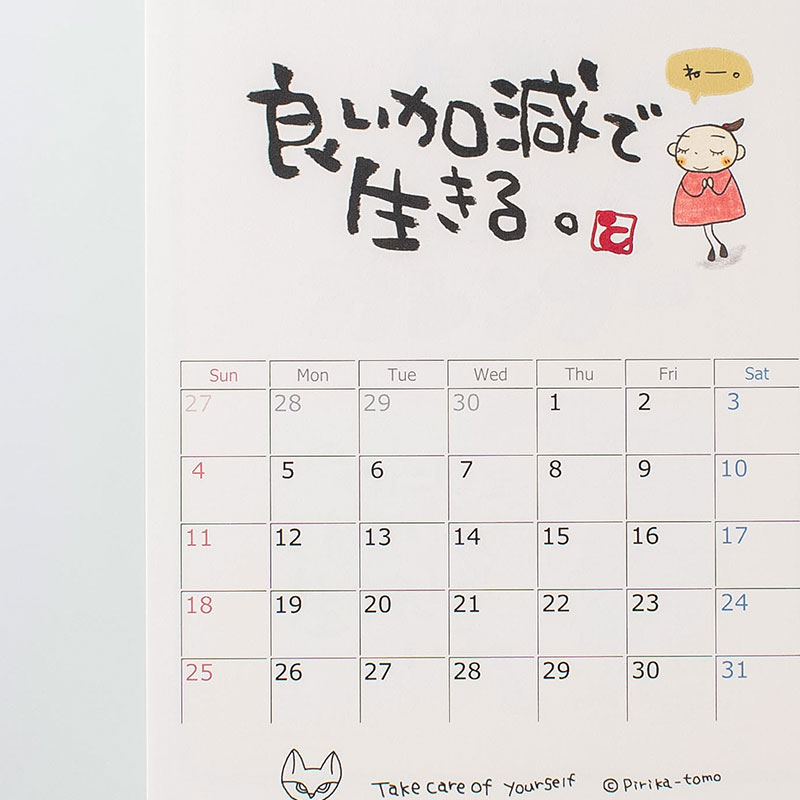 ねー。
良い加減で
生きる。
と
Sun Mon Tue Wed Thu Fri Sat
27 28 29 30 1 2 3
4 5 6 7 8 9 10
11 12 13 14 15 16 17
18 19 20 21 22 23 24
25 26 27 28 29 30 31
Take care of yourself ©Pirika-tomo